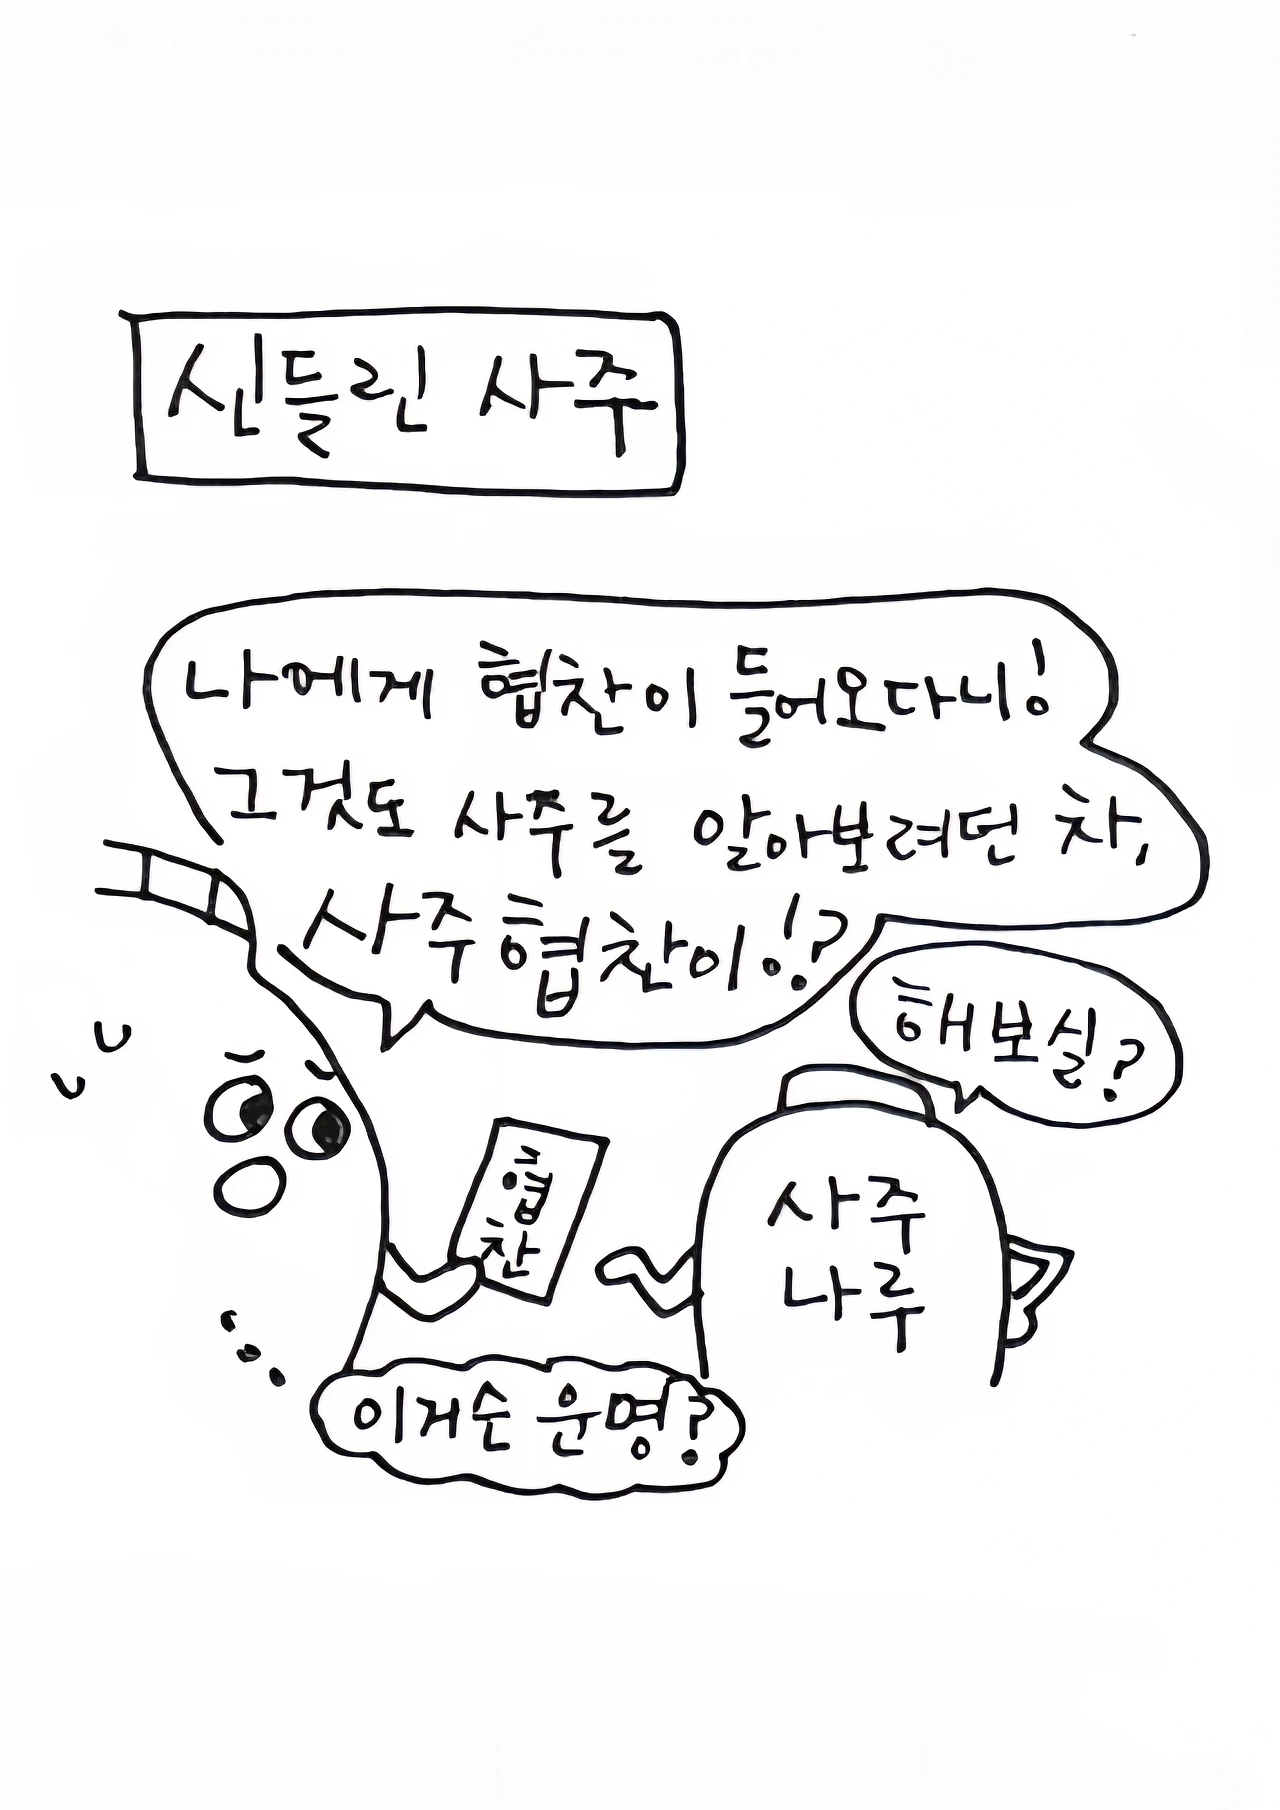 신들린 사주
나에게 협찬이 들어오다니!
그것도 사주를 알아보려던 차,
사주협찬이!?
해보실?
협
찬
사주
나루
이거슨 운명?